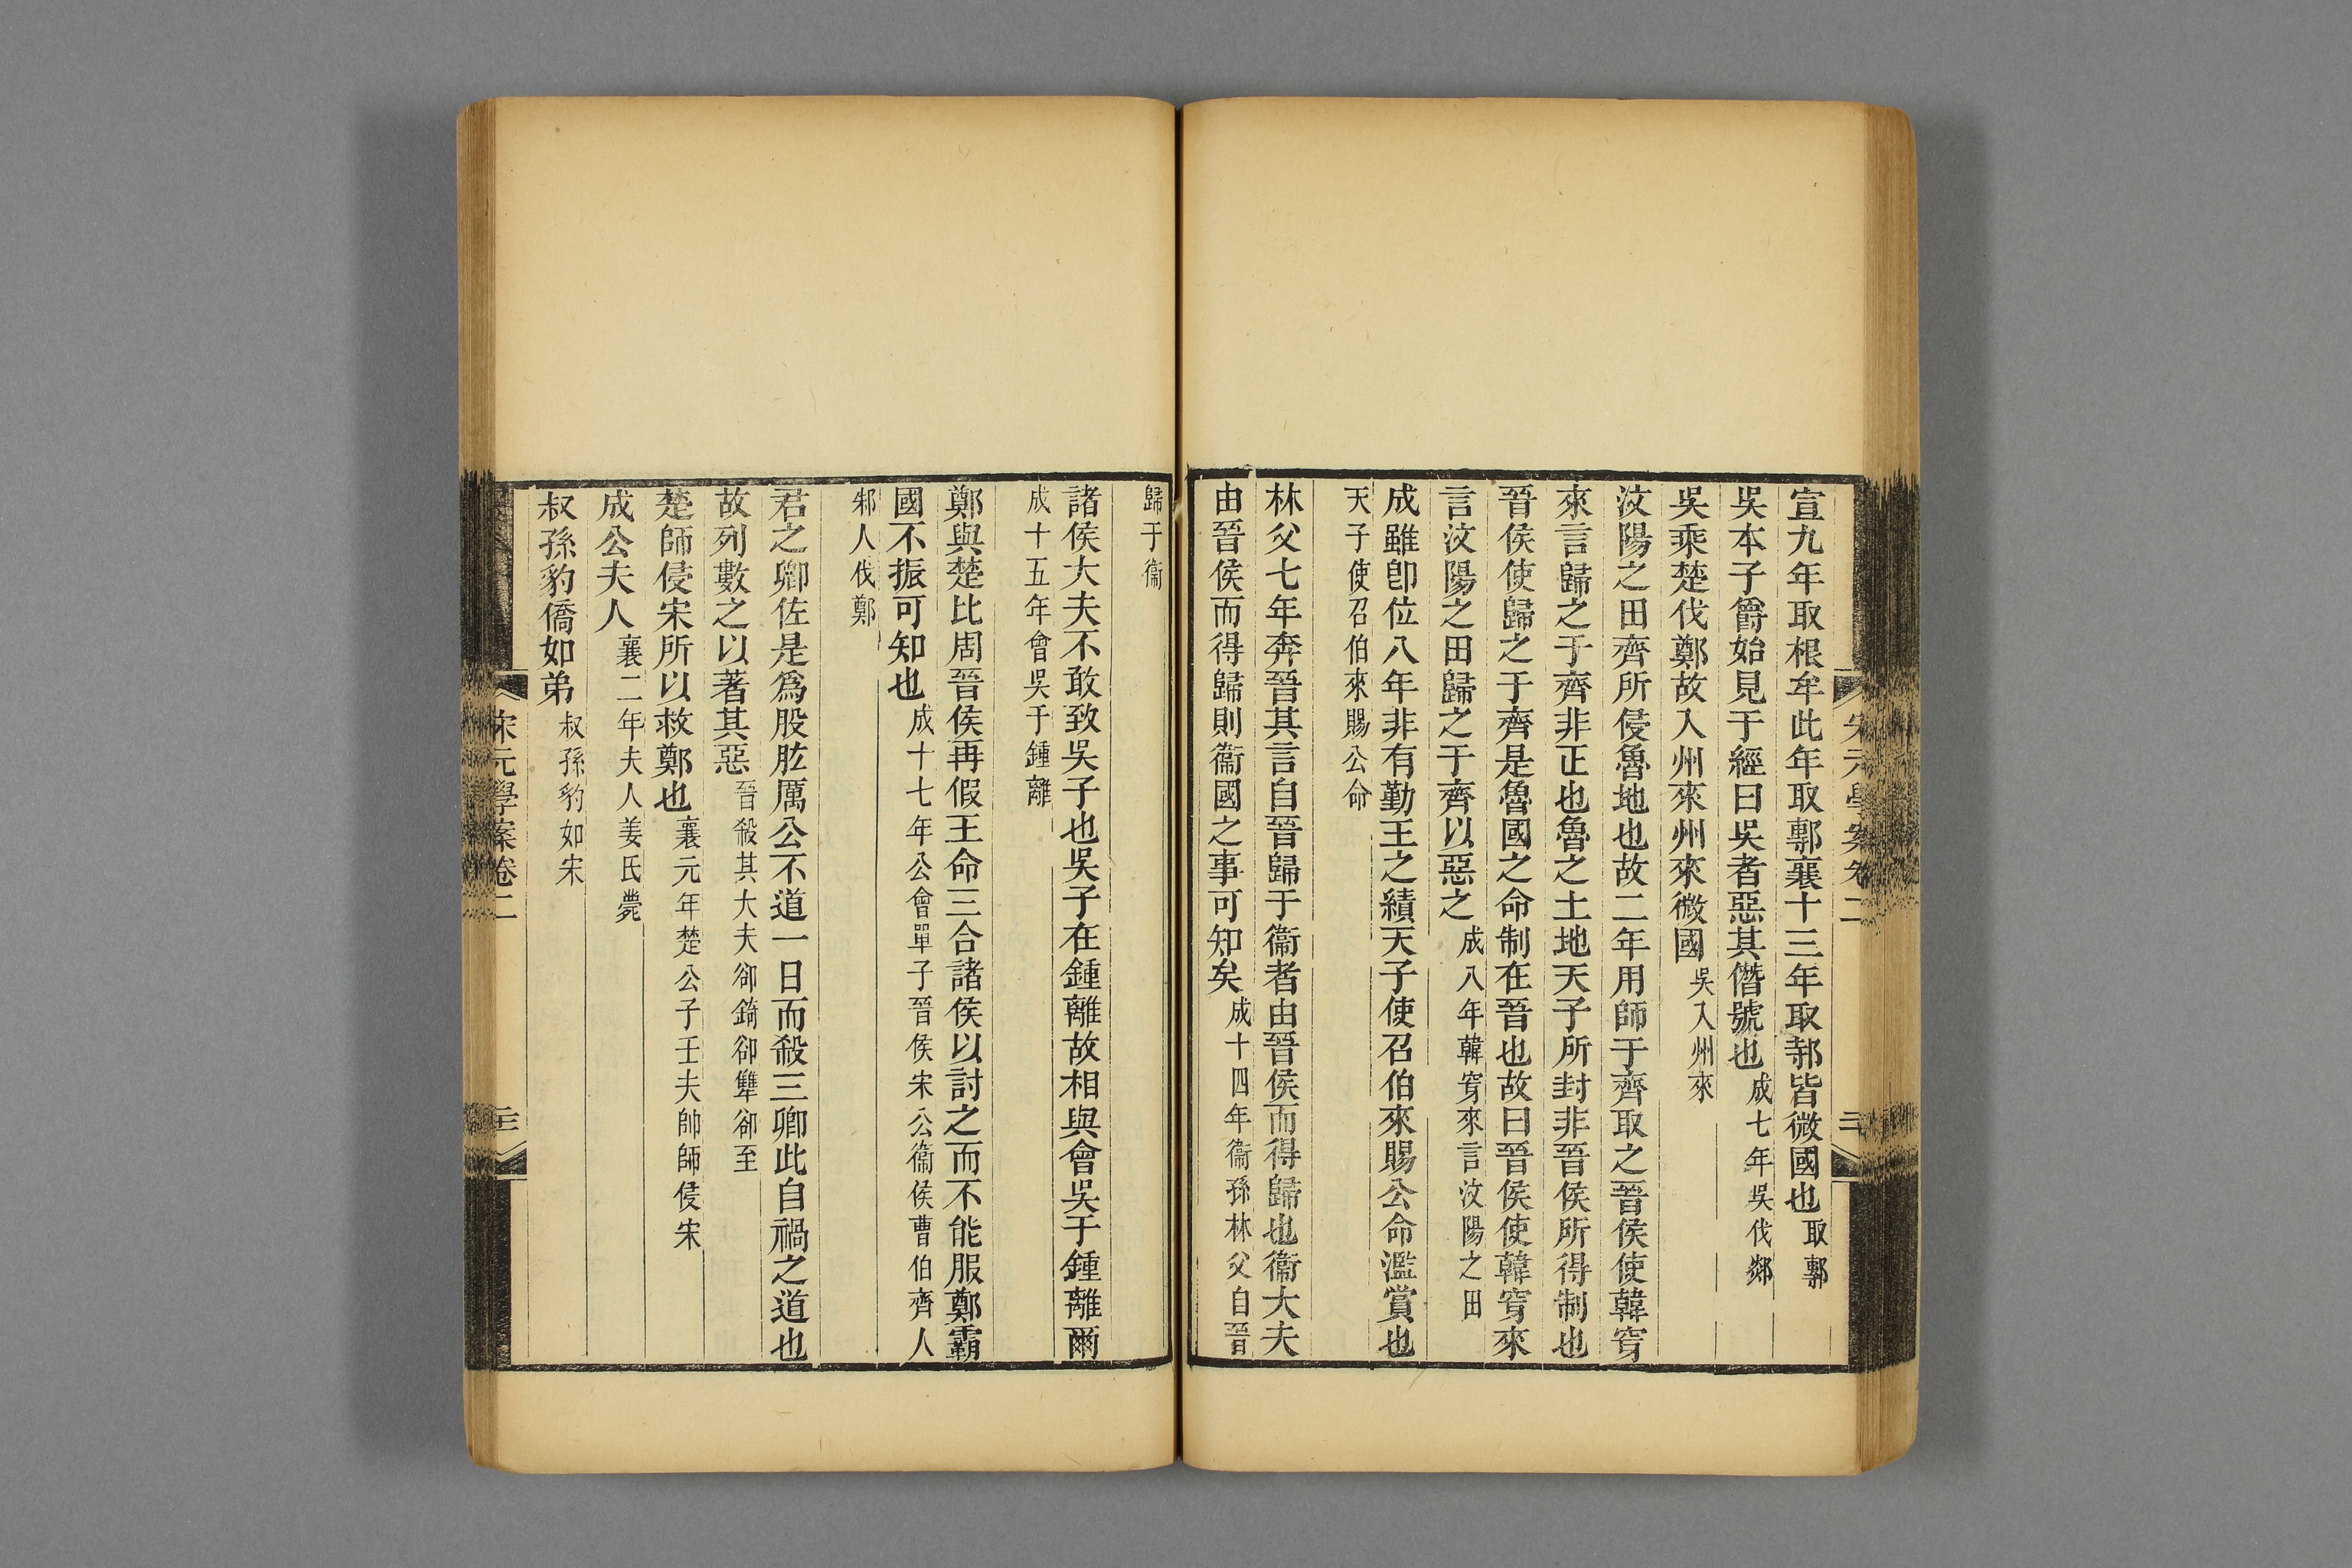 宣九年取根牟此年取鄟襄十三年取邿皆微國也取鄟
吳本子爵始見于經曰吳者惡其僭號也成七年吳伐郯
吳乘楚伐鄭故入州來州來微國吳入州來
汶陽之田齊所侵魯地也故二年用師于齊取之晉侯使韓穿
來言歸之于齊非正也魯之土地天子所封非晉侯所得制也
晉侯使歸之于齊是魯國之命制在晉也故曰晉侯使韓穿來
言汶陽之田歸之于齊以惡之成八年韓穿來言汶陽之田
成雖卽位八年非有勤王之績天子使召伯來賜公命濫賞也
天子使召伯來賜公命
林父七年奔晉其言自晉歸于衞者由晉侯而得歸也衞大夫
由晉侯而得歸則衞國之事可知矣成十四年衞孫林父自晉
歸于衞
諸侯大夫不敢致吳子也吳子在鍾離故相與會吳于鍾離爾
成十五年會吳于鍾離
鄭與楚比周晉侯再假王命三合諸侯以討之而不能服鄭霸
國不振可知也成十七年公會單子晉侯宋公衞侯曹伯齊人
邾人伐鄭
君之卿佐是爲股肱厲公不道一日而殺三卿此自禍之道也
故列數之以著其惡晉殺其大夫郤錡郤犨郤至
楚師侵宋所以救鄭也襄元年楚公子壬夫帥師侵宋
成公夫人襄二年夫人姜氏薨
叔孫豹僑如弟叔孫豹如宋
宋元學案卷二